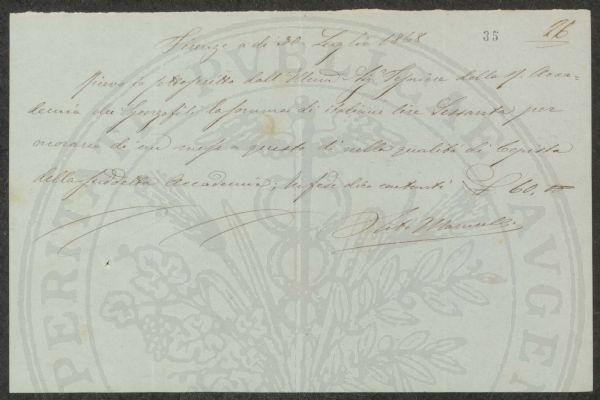 35 26
Firenze a dì 30 Luglio 1868
Ricevo io sottoscritto dall' Sig. della R. Acca-
demia dei Georgofili la somma di italiane lire Sessanta per
di un mese a questo dì nella qualità di Copista
della suddetta Accademia; In fede dico contanti £ 60.00
PERITATI PUBLICAE AUGEN